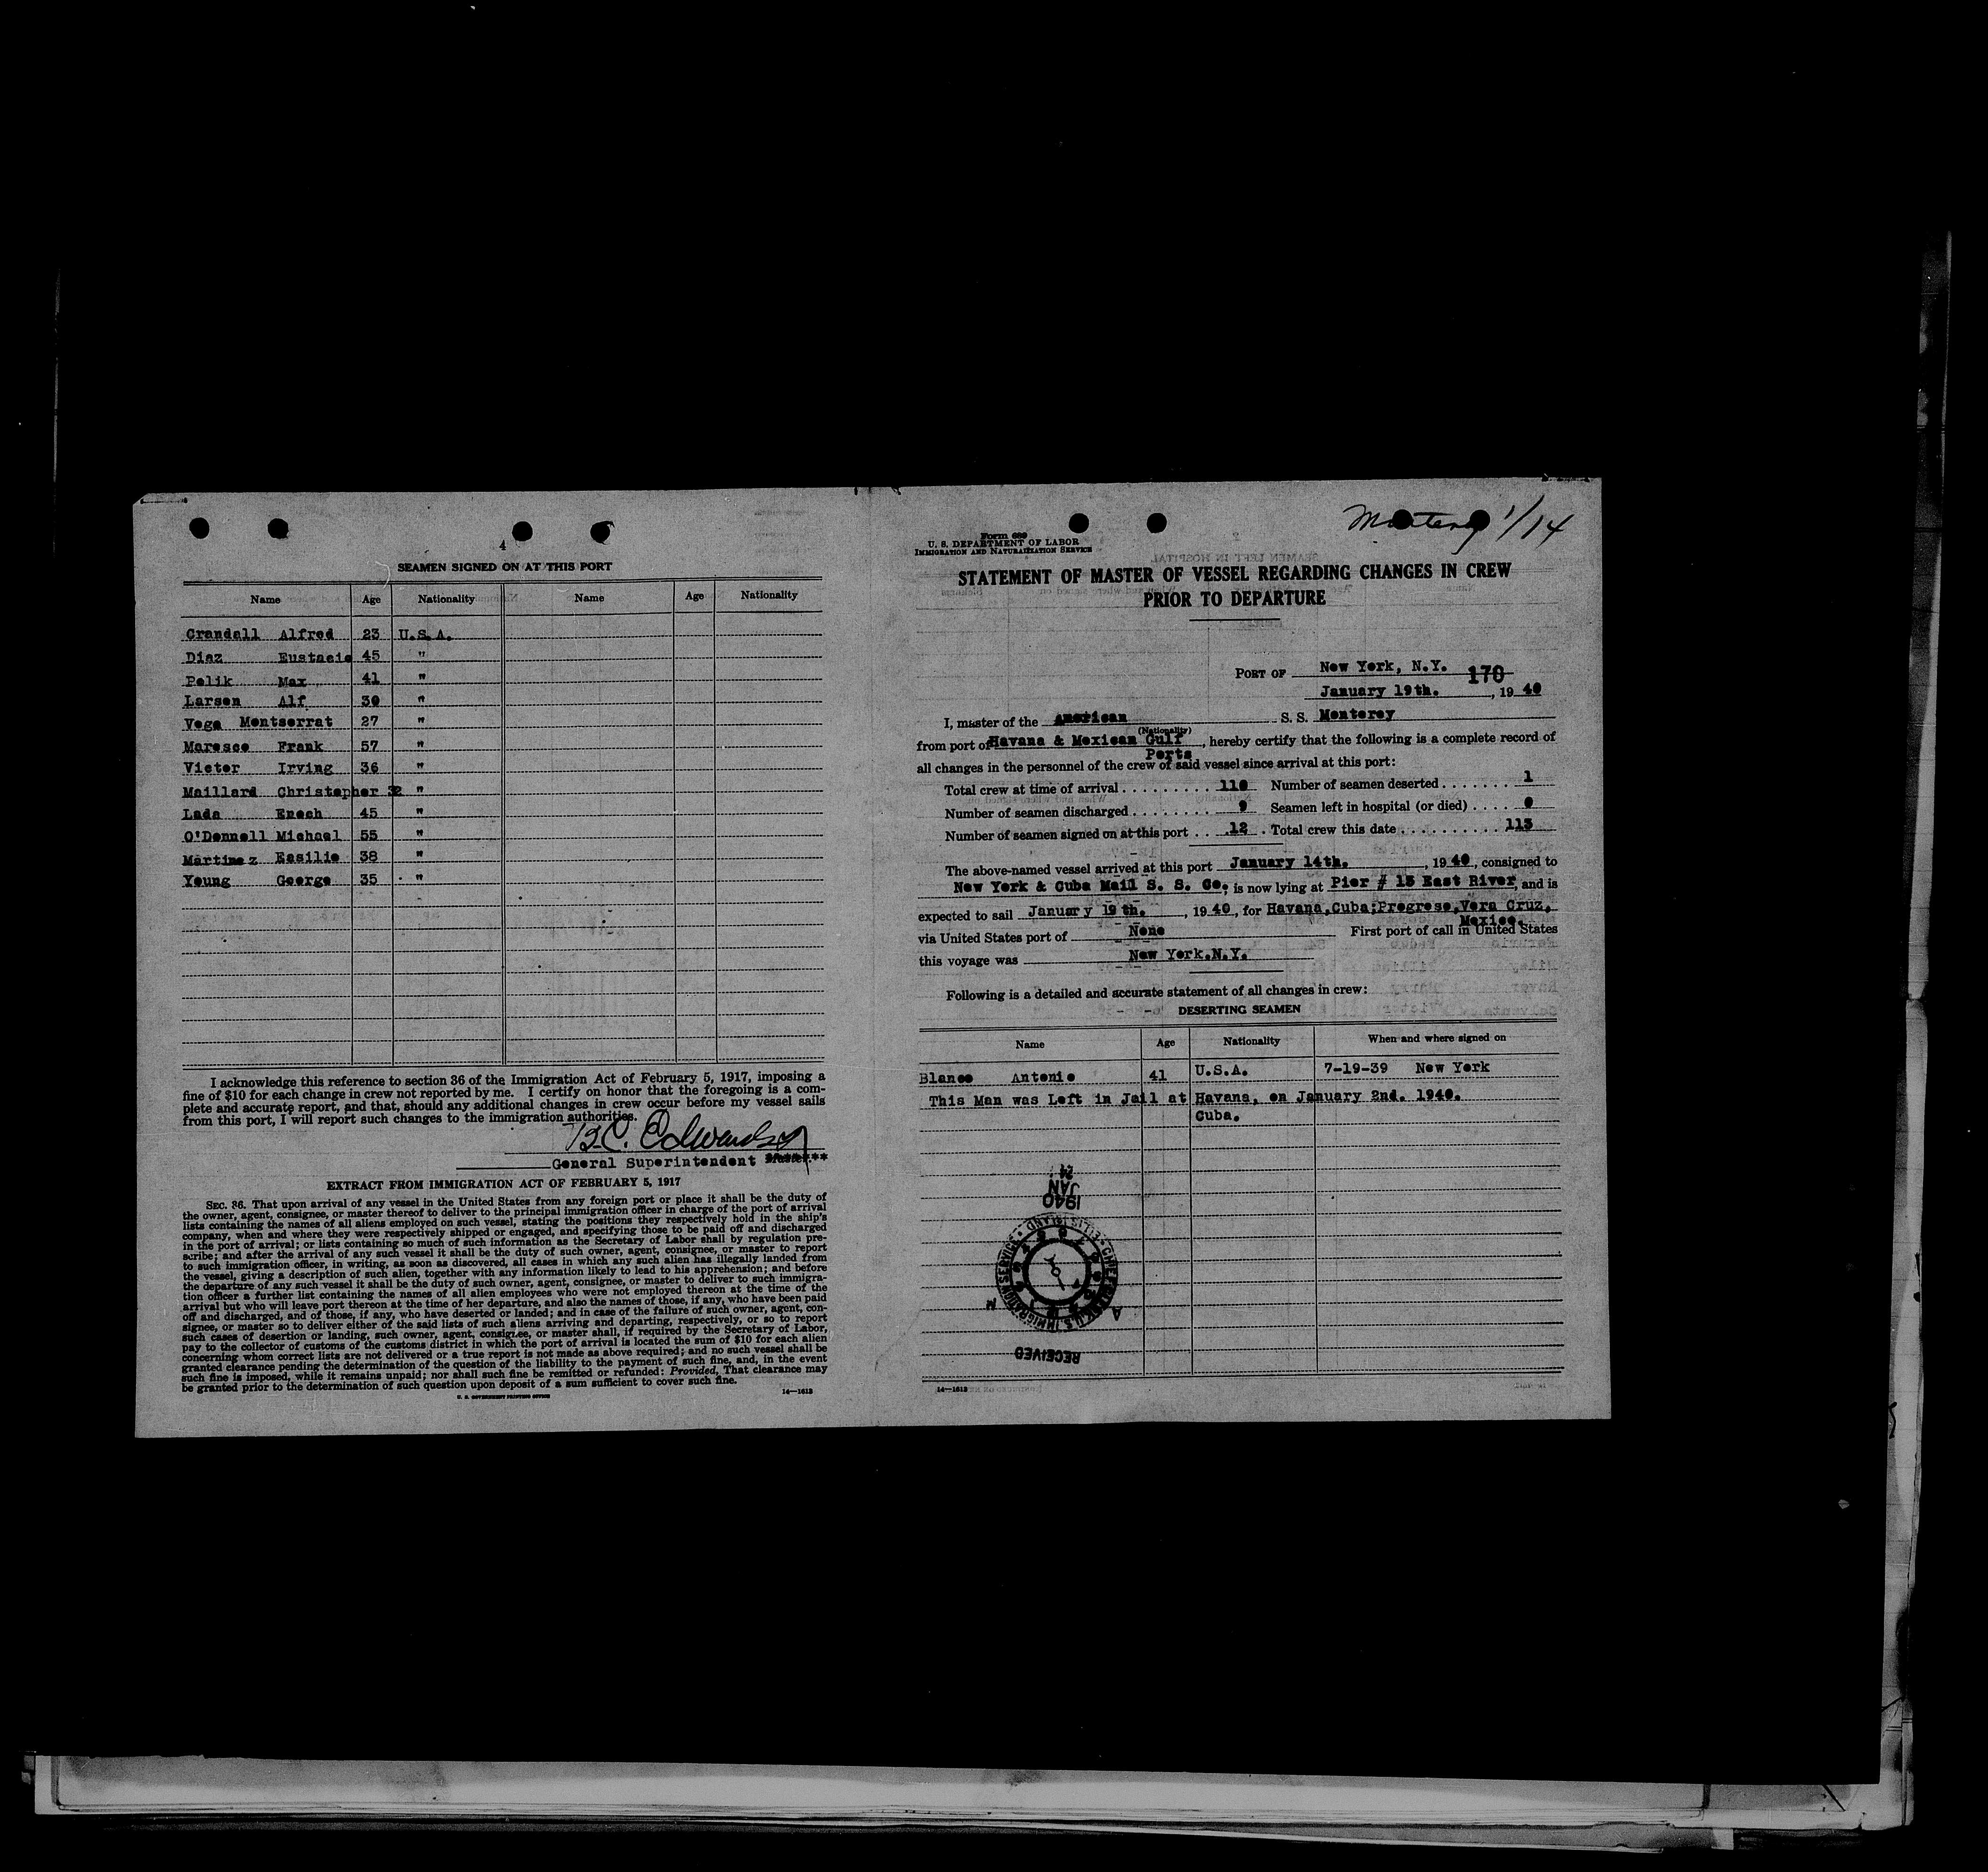 4
SEAMEN SIGNED ON AT THIS PORT
Name Age Nationality Name Age Nationality
Crandall Alfred 23 U.S.A.
Diaz Eustacio 45 "
Polik Max 41 "
Larsen Alf 30 "
Vega Montserrat 27 "
Maresco Frank 57 "
Victor Irving 36 "
Maillard Christopher 32 "
Lada Enoch 45 "
O'Donnell Michael 55 "
Martinez Basilio 38 "
Young George 35 "
I acknowledge this reference to section 36 of the Immigration Act of February 5, 1917, imposing a
fine of $10 for each change in crew not reported by me. I certify on honor that the foregoing is a com-
plete and accurate report, and that, should any additional changes in crew occur before my vessel sails
from this port, I will report such changes to the immigration authorities.
B.C. Edwards
General Superintendent
EXTRACT FROM IMMIGRATION ACT OF FEBRUARY 5, 1917
SEC. 36. That upon arrival of any vessel in the United States from any foreign port or place it shall be the duty of
the owner, agent, consignee, or master thereof to deliver to the principal immigration officer in charge of the port of arrival
lists containing the names of all aliens employed on such vessel, stating the positions they respectively hold in the ship's
company, when and where they were respectively shipped or engaged, and specifying those to be paid off and discharged
in the port of arrival; or lists containing so much of such information as the Secretary of Labor shall by regulation pre-
scribe; and after the arrival of any such vessel it shall be the duty of such owner, agent, consignee, or master to report
to such immigration officer, in writing, as soon as discovered, all cases in which any such alien has illegally landed from
the vessel, giving a description of such alien, together with any information likely to lead to his apprehension; and before
the departure of any such vessel it shall be the duty of such owner, agent, consignee, or master to deliver to such immigra-
tion officer a further list containing the names of all alien employees who were not employed thereon at the time of the
arrival but who will leave port thereon at the time of her departure, and also the names of those, if any, who have been paid
off and discharged, and of those, if any, who have deserted or landed; and in case of the failure of such owner, agent, con-
signee, or master so to deliver either of the said lists of such aliens arriving and departing, respectively, or so to report
such cases of desertion or landing, such owner, agent, consignee, or master shall, if required by the Secretary of Labor,
pay to the collector of customs of the customs district in which the port of arrival is located the sum of $10 for each alien
concerning whom correct lists are not delivered or a true report is not made as above required; and no such vessel shall be
granted clearance pending the determination of the question of the liability to the payment of such fine, and, in the event
such fine is imposed, while it remains unpaid; nor shall such fine be remitted or refunded: Provided, That clearance may
be granted prior to the determination of such question upon deposit of a sum sufficient to cover such fine.
U. S. GOVERNMENT PRINTING OFFICE 14—1613
Monterey 1/14
Form 689
U. S. DEPARTMENT OF LABOR
IMMIGRATION AND NATURALIZATION SERVICE
STATEMENT OF MASTER OF VESSEL REGARDING CHANGES IN CREW
PRIOR TO DEPARTURE
PORT OF New York, N.Y. 170
January 19th. , 19 40
I, master of the American S. S. Monterey
(Nationality)
from port of Havana & Mexican Gulf , hereby certify that the following is a complete record of
Ports
all changes in the personnel of the crew of said vessel since arrival at this port:
Total crew at time of arrival . . . . . . . . . 110 Number of seamen deserted . . . . . . . 1
Number of seamen discharged . . . . . . . . 9 Seamen left in hospital (or died) . . . . 0
Number of seamen signed on at this port . . . 12 . Total crew this date . . . . . . . . . . 113
The above-named vessel arrived at this port January 14th. , 19 40 , consigned to
New York & Cuba Mail S. S. Co. , is now lying at Pier # 13 East River , and is
expected to sail January 19 th. , 19 40 , for Havana,Cuba;Progreso,Vera Cruz,
Mexico.
via United States port of None First port of call in United States
this voyage was New York.N.Y.
Following is a detailed and accurate statement of all changes in crew:
DESERTING SEAMEN
Name Age Nationality When and where signed on
Blanco Antonio 41 U.S.A. 7-19-39 New York
This Man was Left in Jail at Havana, on January 2nd. 1940.
Cuba.
RECEIVED
U.S. IMMIGRATION SERVICE · ELLIS ISLAND
1940
JAN
14—1613